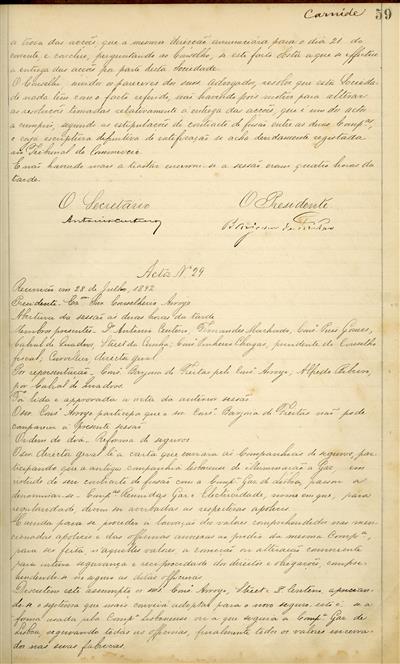 Carnide 59
a troca das acções, que a mesma direcção annunciára para o dia 21 do
corrente e conclue, perguntando ao Conselho, se este facto obsta a que se effectue
a entrega das acções por parte desta Sociedade
O Conselho, ouvido o parecer dos seus advogados, resolve que esta Socieda-
de nada tem com o facto referido, não havendo pois motivo para alterar
as resoluções tomadas relativamente a entrega das acções, que é um dos actos
a cumprir, segundo as estipulações do contracto de fusão entre as duas Comp.as,
e cuja escriptura definitiva de ratificação se acha devidamente registada
no Tribunal do Commercio.
E não havendo mais a tratar encerrou-se a sessão eram quatro horas da
tarde.
O Secretario O Presidente
Acta Nº 29
Reunião em 28 de Julho, 1892
Presidente. Ex.mo Snr. Conselheiro Arroyo
Abertura da sessão ás duas horas da tarde
Membros presentes. D. Antonio Centeno, Fernandes Machado, Cons.º Pires Gomes,
Cabral de Quadros, Street da Cunha; Cons.º Pinheiro Chagas, presidente do Conselho
fiscal, director geral
Por representação. Cons.º Barjona de Freitas pelo Cons.º Arroyo, Alfredo Ribeiro,
por Cabral de Quadros
Foi lida e approvada a acta da anterior sessão
O snr. Cons.º Arroyo participa que o snr. Cons.º Barjona de Freitas não pode
comparecer á presente sessão
Ordem do dia. Reforma de seguros
O snr. director geral lê a carta que enviára ás Companhias de seguros, par-
ticipando que a antiga companhia Lisbonense de Illuminação a Gaz em
virtude do seu contracto de fusão com a Comp.ª Gaz de Lisboa, passou a
denominar-se - Comp.as Reunidas Gaz e Electricidade, nome em que, para
regularidade, devem ser averbadas as respectivas apolices.
E manda para se proceder a louvação dos valores comprehendidos nas men-
cionadas apolices e das officinas annexas ao predio da mesma Comp.ª,
para ser feita, n'aquelles valores, a correcção ou alteração conveniente
para mutua segurança e reciprocidade dos direitos e obrigações, compre-
hendendo-se no seguro as ditas officinas
Discutem este assumpto os snrs. Cons.º Arroyo, Street e D. Centeno, aprecian-
do-se o systema que mais convém adoptar para o novo seguro, isto é, se a
forma usada pela Comp.ª Lisbonense ou a que seguia a Comp.ª Gaz de
Lisboa, segurando todas as officinas, finalmente todos os valores encerra-
dos nas suas fabricas.